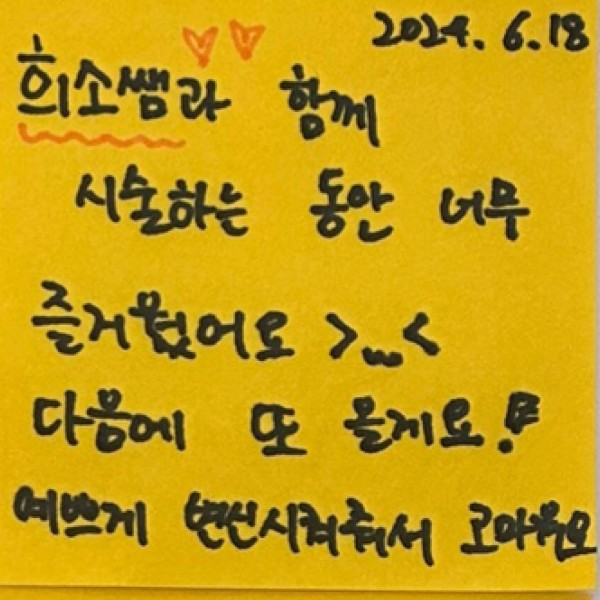 2024. 6. 18
희소쌤과 함께
시술하는 동안 너무
즐거웠어요 >...<
다음에 또 올게요!
예쁘게 변신시켜줘서 고마워요